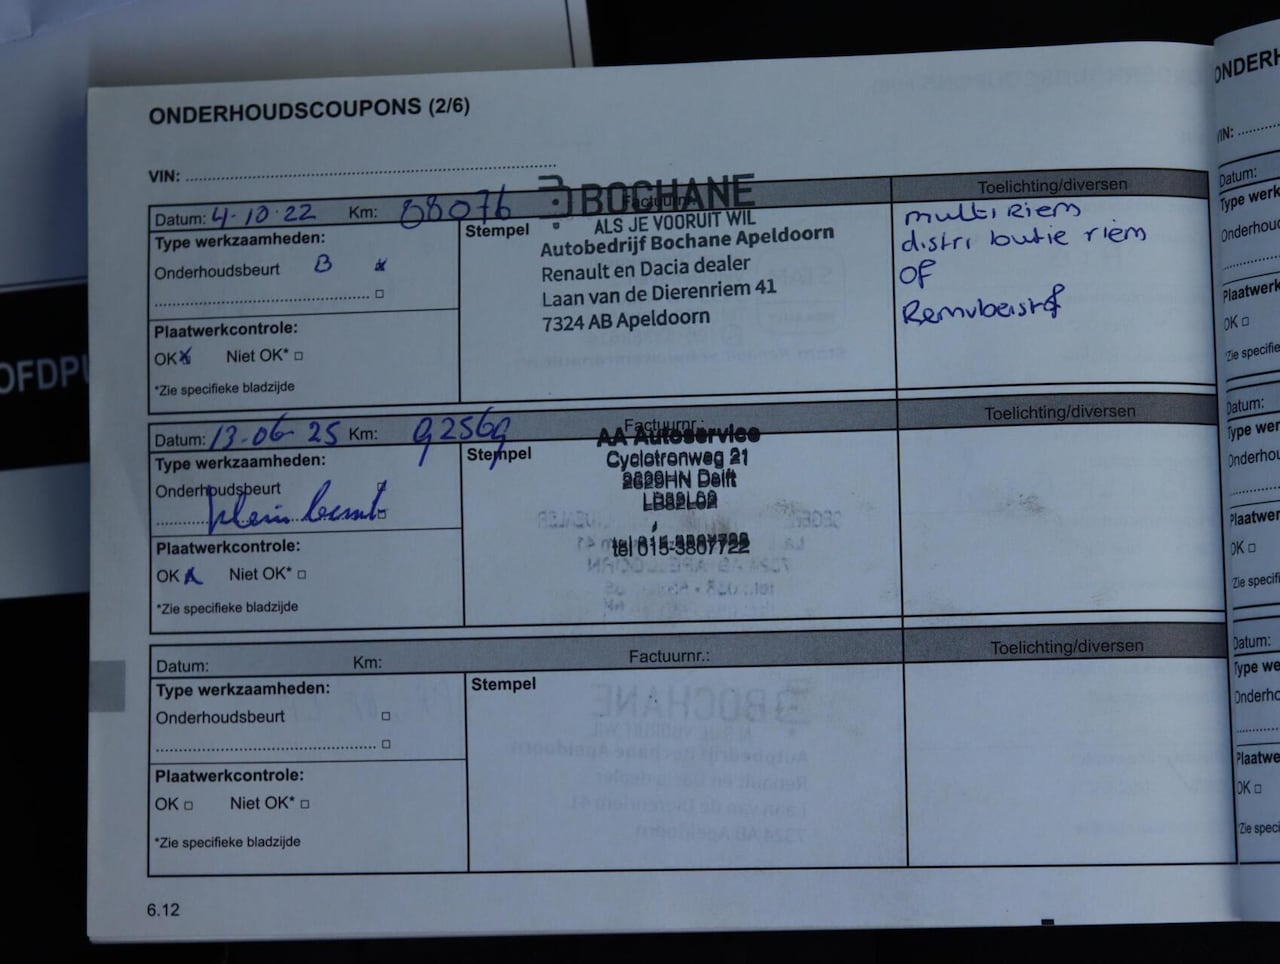 ONDERHOUDSCOUPONS (2/6)
VIN:
Datum: 4-10-22 Km: 88076 Factuurnr.: Toelichting/diversen
Type werkzaamheden:
Onderhoudsbeurt B
Plaatwerkcontrole:
OK Niet OK*
*Zie specifieke bladzijde
Stempel
BOCHANE
ALS JE VOORUIT WIL
Autobedrijf Bochane Apeldoorn
Renault en Dacia dealer
Laan van de Dierenriem 41
7324 AB Apeldoorn
multi Riem
distri butie riem
of
Remvloeistof
Datum: 13-06-25 Km: 92569 Factuurnr.: Toelichting/diversen
Type werkzaamheden:
Onderhoudsbeurt
klein beurt
Plaatwerkcontrole:
OK Niet OK*
*Zie specifieke bladzijde
Stempel
AA Autoservice
Cyclotronweg 21
2629HN Delft
tel 015-3807722
Datum: Km: Factuurnr.: Toelichting/diversen
Type werkzaamheden:
Onderhoudsbeurt
Plaatwerkcontrole:
OK Niet OK*
*Zie specifieke bladzijde
Stempel
6.12
OFDPU
ONDERH
VIN:
Datum:
Type wer
Onderhou
Plaatwerk
OK
*Zie specifie
Datum:
Type wer
Onderhou
Plaatwer
OK
*Zie specif
Datum:
Type we
Onderho
Plaatwe
OK
*Zie speci